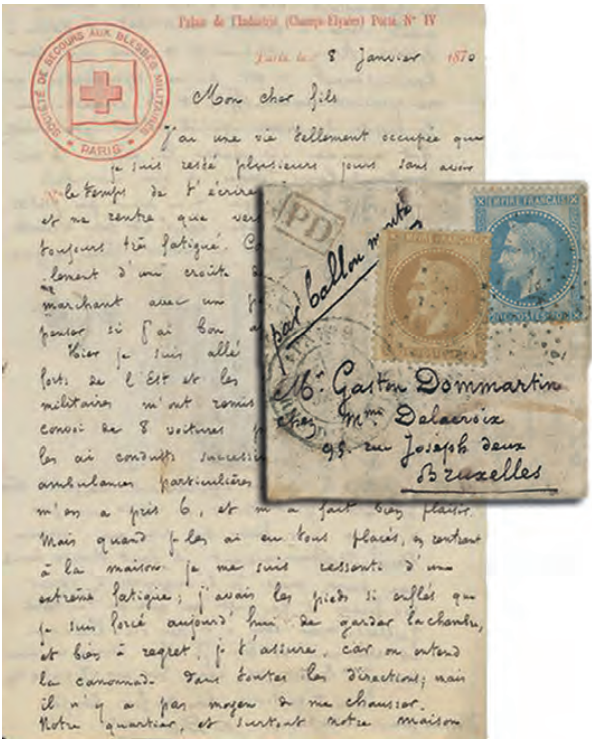 Palais de l'Industrie (Champs-Elysées) Porte N° IV
SOCIÉTÉ DE SECOURS AUX BLESSÉS MILITAIRES
PARIS
Paris le 8 Janvier 1870
Mon cher fils
J'ai une vie tellement occupée que
je suis resté plusieurs jours sans avoir
N°
le temps de t'écrire
et ne rentre que vers
toujours très fatigué.
-lement d'une croûte
marchant avec un
penser si j'ai bon
Hier je suis allé
forts de l'Est et les
militaires m'ont remis
convoi de 8 voitures
les ai conduits
ambulances particulières
m'en a pris 6, et m'a fait bien plaisir.
Mais quand je les ai eu tous placés, en rentrant
à la maison je me suis ressenti d'une
extrême fatigue; j'avais les pieds si enflés que
je suis forcé aujourd'hui de garder la chambre,
et bien à regret, je t'assure, car on entend
la canonnade dans toutes les directions; mais
il n'y a pas moyen de me chausser.
Notre quartier, et surtout notre maison
PD
par ballon monté
EMPIRE FRANÇAIS
EMPIRE FRANÇAIS
Mr Gaston Dommartin
chez Mme Delacroix
95 rue Joseph deux
Bruxelles